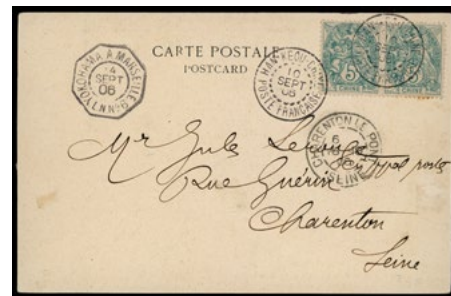 CARTE POSTALE
POSTCARD
YOKOHAMA A MARSEILLE
4
SEPT
06
L.N N° 6
HAN-KEOU-CHINE
10
SEPT
06
POSTE FRANÇAISE
5
5
CHINE
CHARENTON LE PONT
SEINE
Mr Jules
Rue Guérin
Charenton
Seine